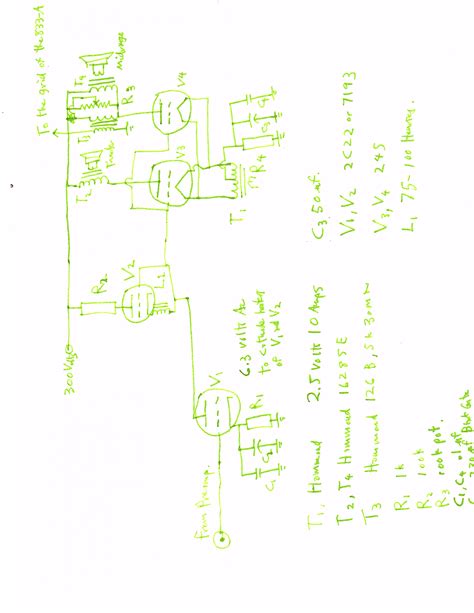 To the grid of the 833-A
T4
Midrange
R3
T3
V4
T2
V3
R4
C4
C3
T1
300 Vdc
R2
V2
L1
6.3 volts AC
to cathode heater
of V1 and V2
V1
R1
C2
C1
From Preamp.
T1, Hammond 2.5 volts 10 Amps
T2, T4 Hammond 1628SE
T3 Hammond 126B, 5k 30ma
R1 1k
R2 100k
R3 100k pot.
C1, C4 .1 µf
C3 50 µf.
V1, V2 2C22 or 7193
V3, V4 245
L1 75-100 Henry.